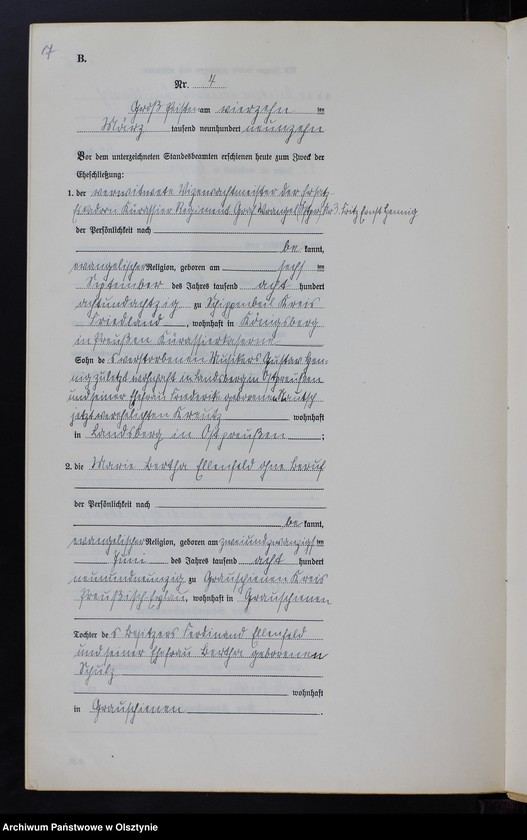 7
B.
Nr. 4
Groß Peisten am vierzehnten
März tausend neunhundert neunzehn
Vor dem unterzeichneten Standesbeamten erschienen heute zum Zweck der
Eheschließung:
1. der verwitwete Vizewachtmeister der Ersatz
Eskadron Kürassier Regiment Graf Wrangel Nr 3. Fritz Ernst Hennig
der Persönlichkeit nach
be kannt,
evangelischer Religion, geboren am sechsten
September des Jahres tausend acht hundert
achtundachtzig zu Schippenbeil Kreis
Friedland, wohnhaft in Königsberg
in Preußen Kürassierkaserne
Sohn des verstorbenen Musikers Gustav Hen-
nig zuletzt wohnhaft in Landsberg in Ostpreußen
und seiner Ehefrau Friederike geborenen
jetzt verehelichten Kreutz wohnhaft
in Landsberg in Ostpreußen ;
2. die Marie Bertha Ellenfeld ohne Beruf
der Persönlichkeit nach
be kannt,
evangelischer Religion, geboren am zweiundzwanzigsten
Juni des Jahres tausend acht hundert
neunundneunzig zu Grauschienen Kreis
Preußisch Eylau, wohnhaft in Grauschienen
Tochter des Besitzers Ferdinand Ellenfeld
und seiner Ehefrau Bertha geborenen
Schulz
wohnhaft
in Grauschienen.
Archiwum Państwowe w Olsztynie